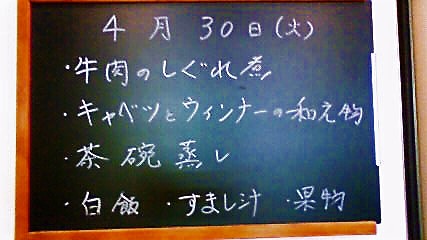 4月30日(火)
・牛肉のしぐれ煮
・キャベツとウィンナーの和え物
・茶碗蒸し
・白飯 ・すまし汁 ・果物